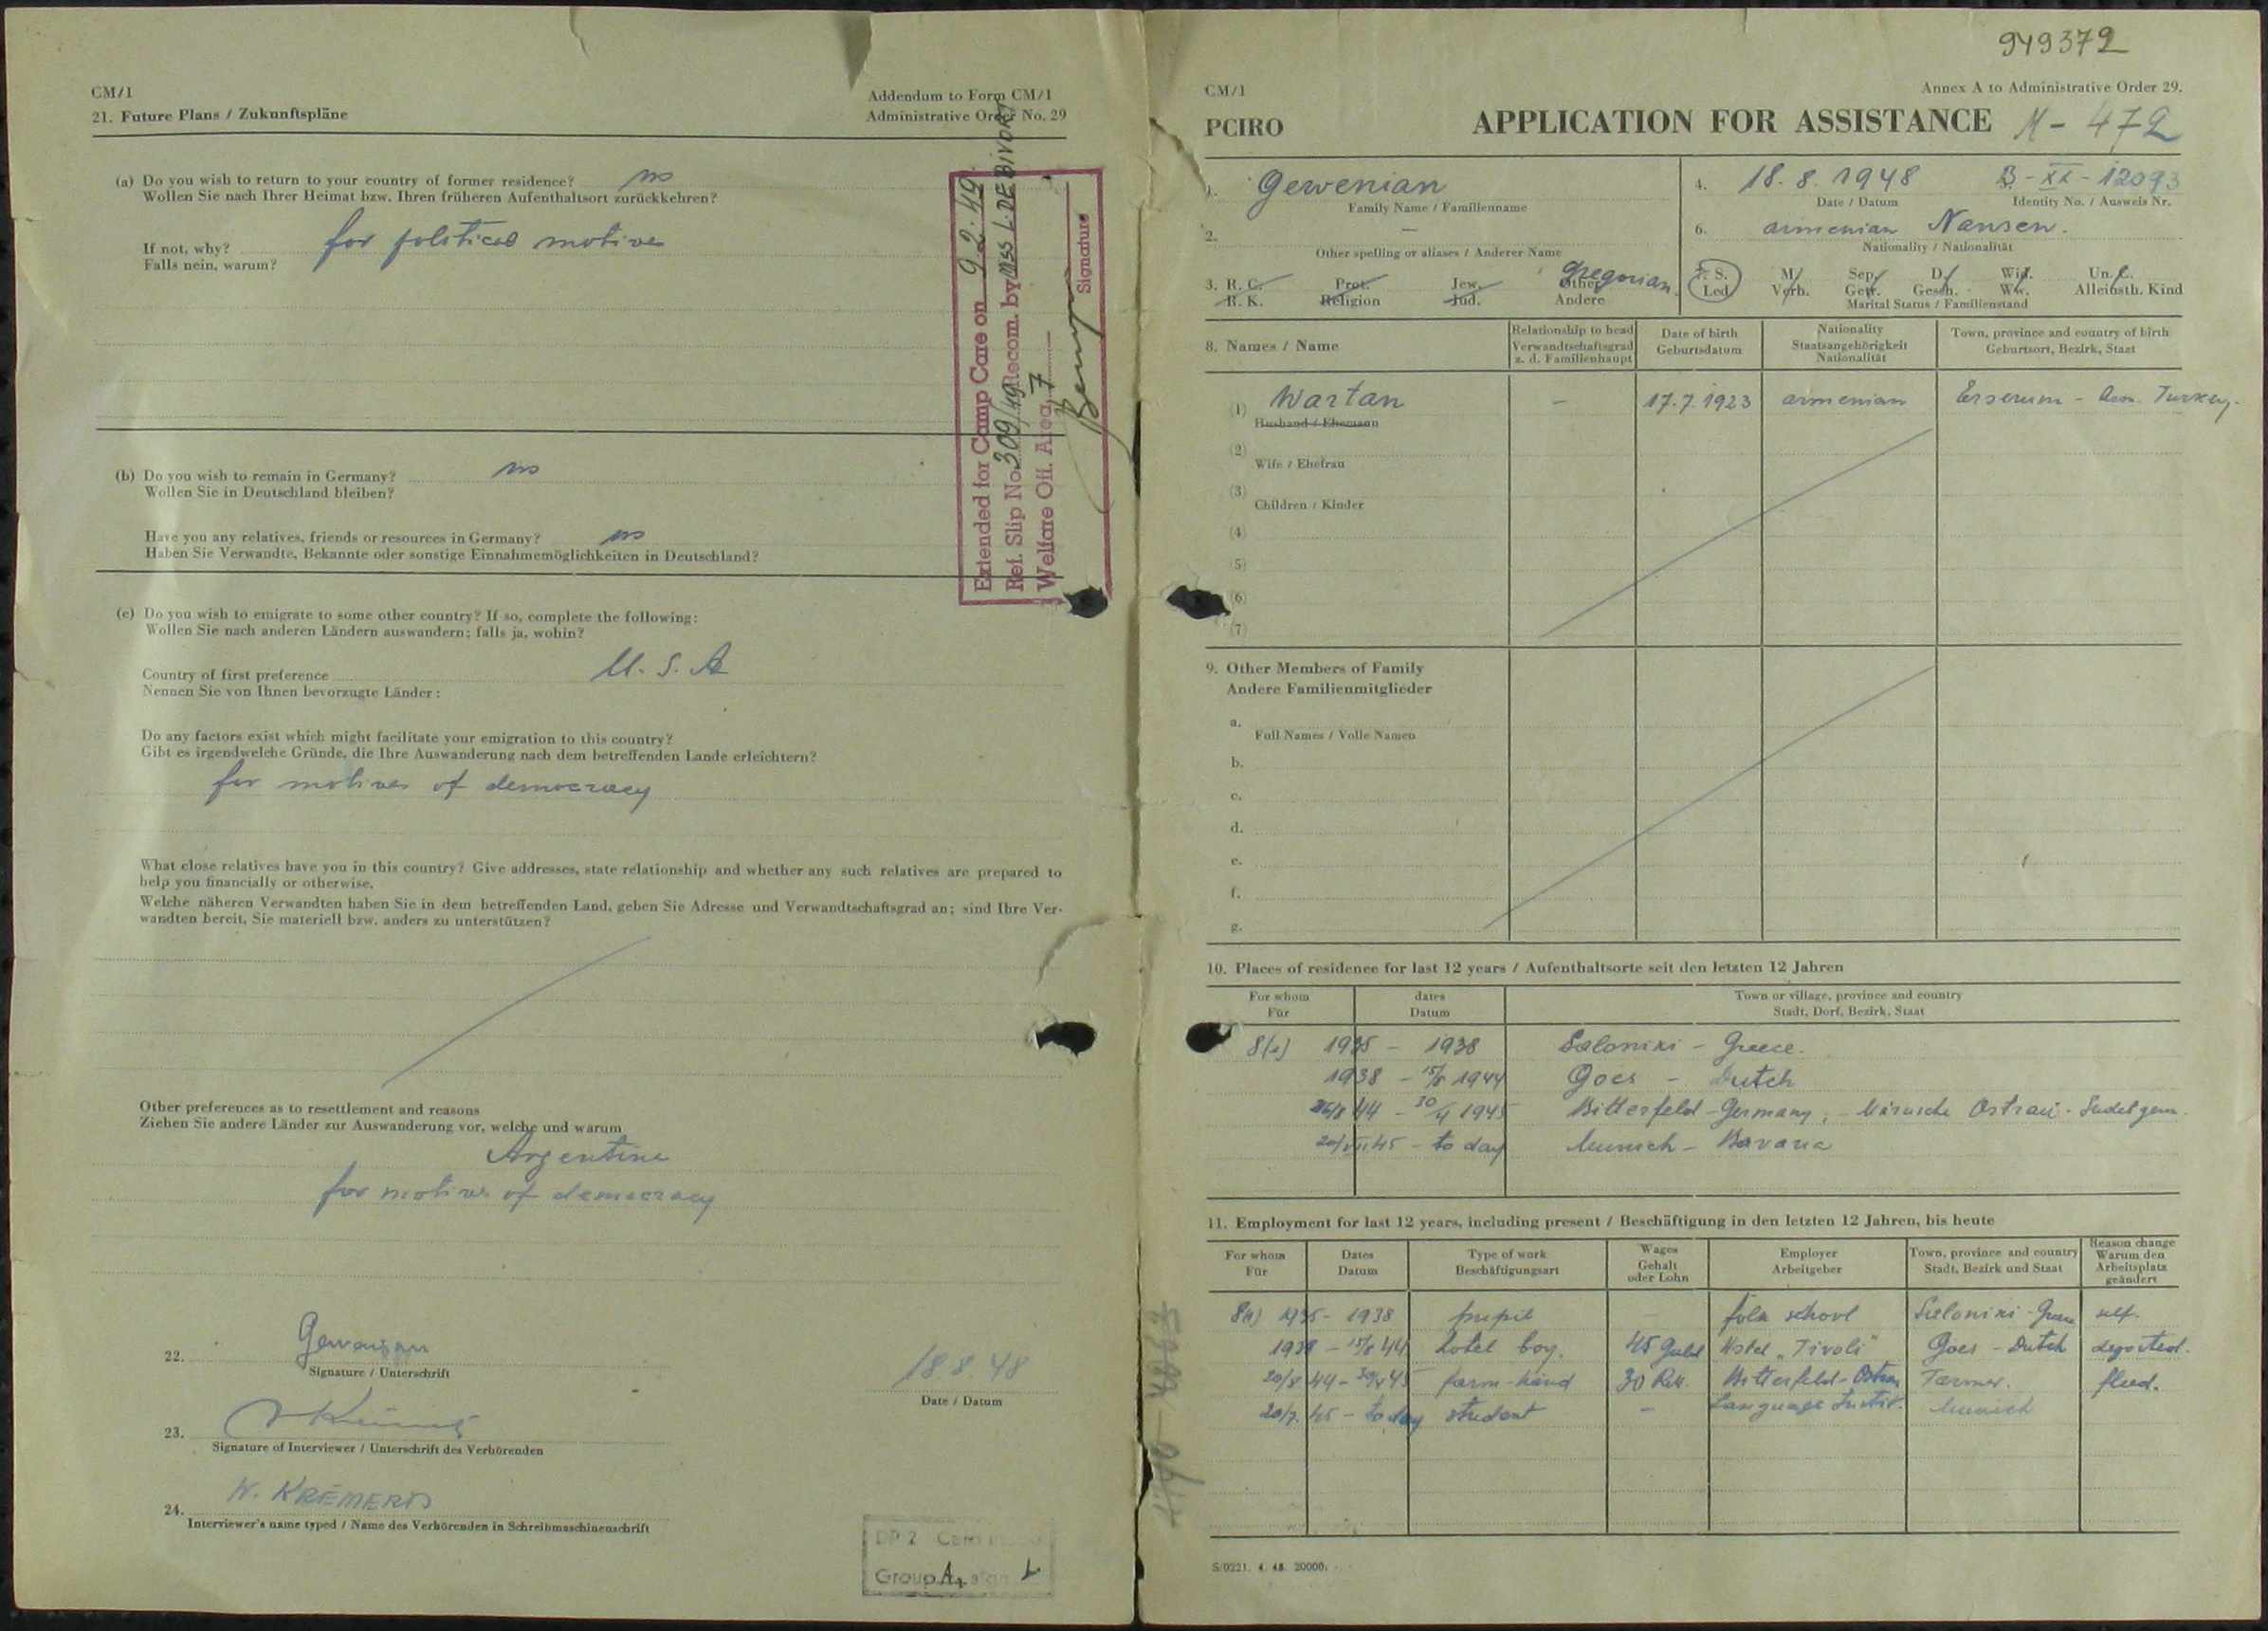 CM/1
Addendum to Form CM/1
21. Future Plans / Zukunftspläne
Administrative Order No. 29
(a) Do you wish to return to your country of former residence? no
Wollen Sie nach Ihrer Heimat bzw. Ihren früheren Aufenthaltsort zurückkehren?
If not, why? for political motives
Falls nein, warum?
Extended for Camp Care on 9.2.49.
Ref. Slip No. 309/49 Recom. by Miss L. DE BIVORT
Welfare Off. Area 7
Signature
(b) Do you wish to remain in Germany? no
Wollen Sie in Deutschland bleiben?
Have you any relatives, friends or resources in Germany? no
Haben Sie Verwandte, Bekannte oder sonstige Einnahmemöglichkeiten in Deutschland?
(c) Do you wish to emigrate to some other country? If so, complete the following:
Wollen Sie nach anderen Ländern auswandern; falls ja, wohin?
Country of first preference U. S. A
Nennen Sie von Ihnen bevorzugte Länder:
Do any factors exist which might facilitate your emigration to this country?
Gibt es irgendwelche Gründe, die Ihre Auswanderung nach dem betreffenden Lande erleichtern?
for motives of democracy
What close relatives have you in this country? Give addresses, state relationship and whether any such relatives are prepared to
help you financially or otherwise.
Welche näheren Verwandten haben Sie in dem betreffenden Land, geben Sie Adresse und Verwandtschaftsgrad an; sind Ihre Ver-
wandten bereit, Sie materiell bzw. anders zu unterstützen?
Other preferences as to resettlement and reasons
Ziehen Sie andere Länder zur Auswanderung vor, welche und warum
Argentine
for motives of democracy
22.
Signature / Unterschrift
18.8.48
Date / Datum
23.
Signature of Interviewer / Unterschrift des Verhörenden
24. W. KREMERIS
Interviewer's name typed / Name des Verhörenden in Schreibmaschinenschrift
DP 2
Group A4
949372
CM/1
Annex A to Administrative Order 29.
PCIRO
APPLICATION FOR ASSISTANCE M - 472
1. Gewenian
Family Name / Familienname
4. 18. 8. 1948 B - XX - 12093
Date / Datum Identity No. / Ausweis Nr.
2. –
Other spelling or aliases / Anderer Name
6. armenian Nansen.
Nationality / Nationalität
3. R. C. Prot. Jew. Other Gregorian.
R. K. Religion Jud. Andere
S. M/ Sep. D/ Wid. Un. C.
Led. Verh. Getr. Gesch. Ww. Alleinsth. Kind
Marital Status / Familienstand
8. Names / Name
Relationship to head
Verwandtschaftsgrad
z. d. Familienhaupt
Date of birth
Geburtsdatum
Nationality
Staatsangehörigkeit
Nationalität
Town, province and country of birth
Geburtsort, Bezirk, Staat
(1) Wartan – 17.7.1923 armenian Erserum - Arm. Turkey.
Husband / Ehemann
(2)
Wife / Ehefrau
(3)
Children / Kinder
(4)
(5)
(6)
(7)
9. Other Members of Family
Andere Familienmitglieder
a.
Full Names / Volle Namen
b.
c.
d.
e.
f.
g.
10. Places of residence for last 12 years / Aufenthaltsorte seit den letzten 12 Jahren
For whom dates Town or village, province and country
Für Datum Stadt, Dorf, Bezirk, Staat
8(1) 1935 - 1938 Saloniki - Greece.
1938 - 15/8 1944 Goes - Dutch
44 - 30/4 1945 Bitterfeld - Germany, Märische Ostrau - Sudetgerm.
20/VII.45 - to day Munich - Bavaria
11. Employment for last 12 years, including present / Beschäftigung in den letzten 12 Jahren, bis heute
For whom Dates Type of work Wages Employer Town, province and country Reason change
Für Datum Beschäftigungsart Gehalt oder Lohn Arbeitgeber Stadt, Bezirk und Staat Warum den Arbeitsplatz geändert
8(1) 1935 - 1938 pupil – folk school Saloniki - Greece self.
1938 - 15/8 44 hotel boy. 45 Guld Hotel "Tivoli" Goes - Dutch deported.
20/8 44 - 30/4 45 farm-hand 30 R.M. Bitterfeld - Ostrau Farmer. fled.
20/7. 45 - to day student – Language Instit. Munich
S/0221. 4. 48. 20000.